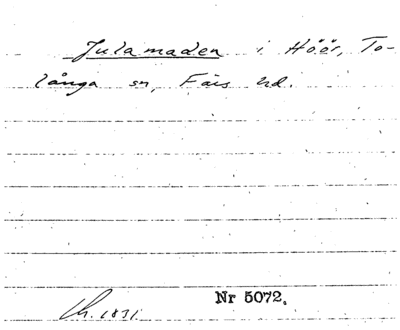 Julamaden i Höör, To-
långa sn, Färs hd.
Nr 5072.